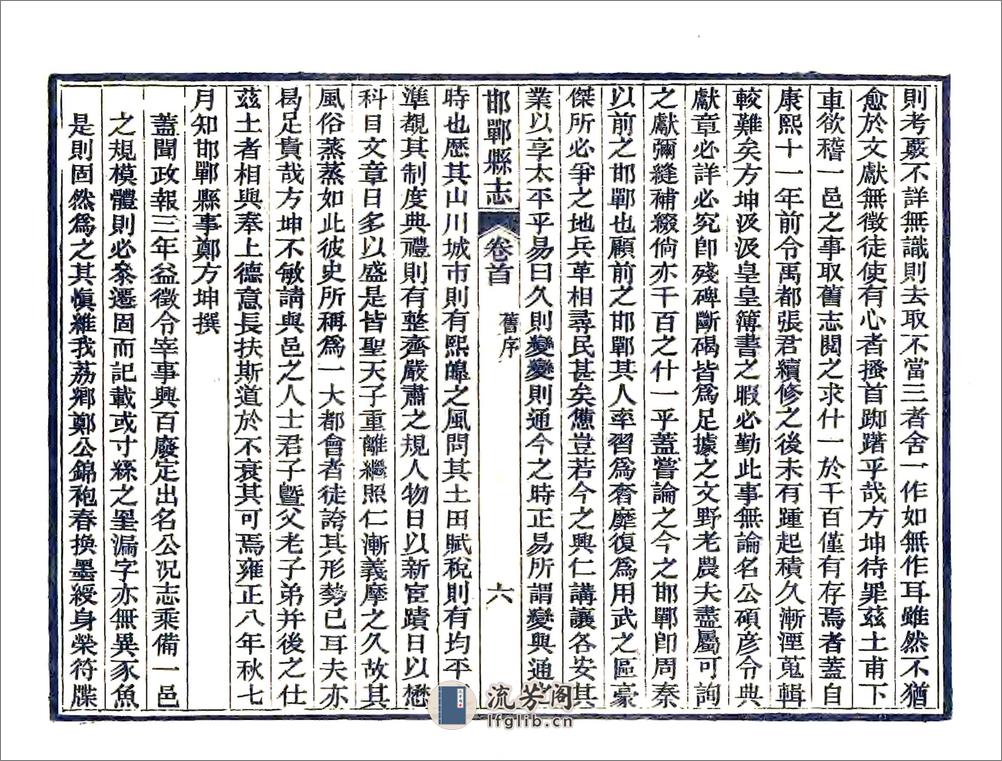 則考覈不詳無識則去取不當三者舍一作如無作耳雖然不猶
愈於文獻無徵徒使有心者搔首踟躇乎哉方坤待罪茲土甫下
車欲稽一邑之事取舊志閱之求什一於千百僅有存焉者蓋自
康熙十一年前令禹都張君續修之後未有踵起積久漸湮蒐輯
較難矣方坤汲汲皇皇簿書之暇必勤此事無論名公碩彥令典
獻章必詳必究卽殘碑斷碣皆爲足據之文野老農夫盡屬可詢
之獻彌縫補綴倘亦千百之什一乎蓋嘗論之今之邯鄲卽周秦
以前之邯鄲也顧前之邯鄲其人率習爲奢靡復爲用武之區豪
傑所必爭之地兵革相尋民甚矣憊豈若今之興仁講讓各安其
業以享太平乎易曰久則變變則通今之時正易所謂變與通之
邯鄲縣志
卷首
舊序
六
時也歷其山川城市則有熙皞之風問其土田賦稅則有均平之
準觀其制度典禮則有整齊嚴肅之規人物日以新宦蹟日以懋
科目文章日多以盛是皆聖天子重離繼照仁漸義摩之久故其
風俗蒸蒸如此彼史所稱爲一大都會者徒誇其形勢已耳夫亦
曷足貴哉方坤不敏請與邑之人士君子曁父老子弟并後之仕
茲土者相與奉上德意長扶斯道於不衰其可焉雍正八年秋七
月知邯鄲縣事鄭方坤撰
蓋聞政報三年益徵令宰事興百廢定出名公况志乘備一邑
之規模體則必叅遷固而記載或寸絲之罣漏字亦無異豕魚
是則固然爲之其愼維我荔鄉鄭公錦袍春換墨綬身榮符牒
流芳阁
lfglib.cn